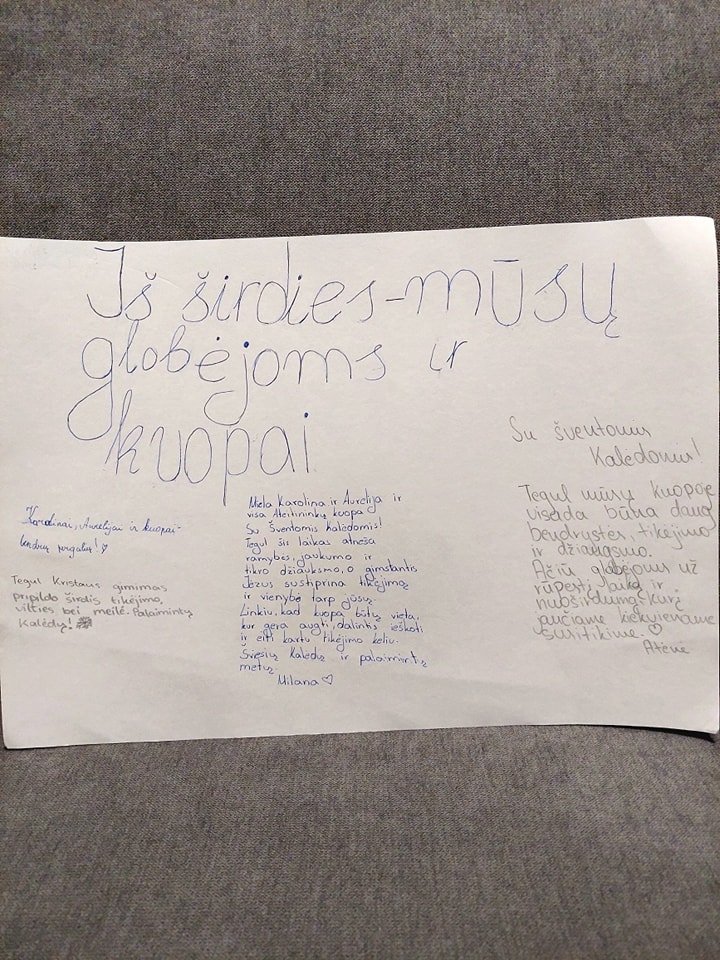 Iš širdies-mūsų
globėjoms ir
kuopai
Karolinai, Aurelijai ir kuopai-
Tegul Kristaus gimimas
pripildo širdis tikėjimo,
vilties bei meilė. Palaimintų
Kalėdų!
Miela Karolina ir Aurelija ir
visa Ateitininkų kuopa
Su Šventomis Kalėdomis!
Tegul šis laikas atneša
ramybės, jaukumo ir
tikro džiauksmo, o gimstantis
Jėzus sustiprina tikėjimą
ir vienybę tarp jūsų.
Linkiu, kad kuopa būtų vieta,
kur gera augti, dalintis, ieškoti
ir eiti kartu tikėjimo keliu.
Šviesių Kalėdų ir palaimintų
metų
Milana ♡
Su šventomis
Kalėdomis!
Tegul mūsų kuopoje
visada būna daug
bendrystės, tikėjimo
ir džiaugsmo.
Ačiū globėjoms už
rūpestį, laiką ir
nuoširdumą, kurį
jaučiame kiekviename
susitikime. ♡
Atėnė